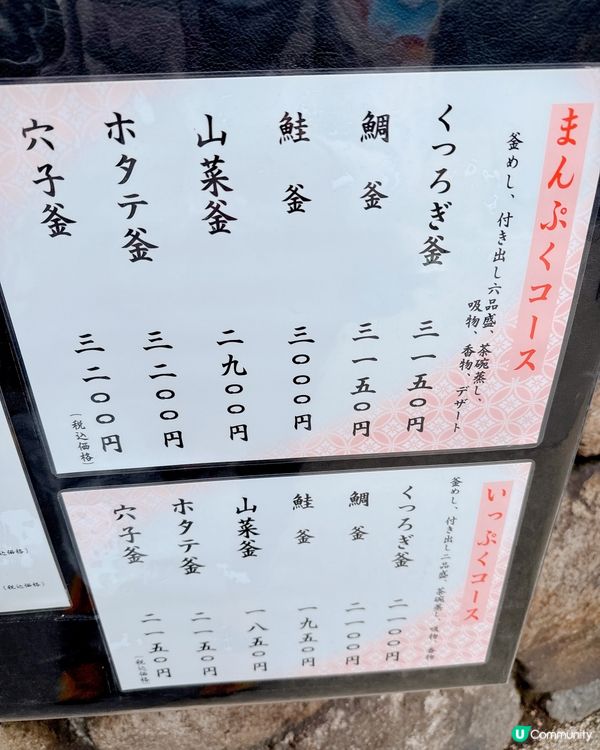 まんぷくコース
釜めし、付き出し六品盛、茶碗蒸し、
吸物、香物、デザート
くつろぎ釜 三一五〇円
鯛釜 三一五〇円
鮭釜 三〇〇〇円
山菜釜 二九〇〇円
ホタテ釜 三二〇〇円
穴子釜 三二〇〇円
(税込価格)
いっぷくコース
釜めし、付き出し二品盛、茶碗蒸し、吸物、香物
くつろぎ釜 二一〇〇円
鯛釜 二一〇〇円
鮭釜 一九五〇円
山菜釜 一八五〇円
ホタテ釜 二一五〇円
穴子釜 二一五〇円
(税込価格)
(税込価格)
U Community